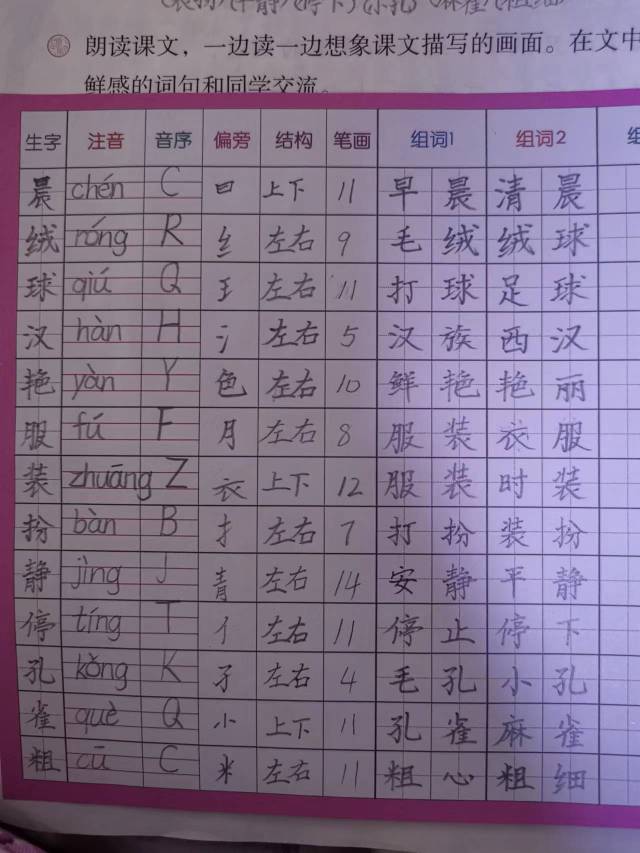 朗读课文，一边读一边想象课文描写的画面。在文中
鲜感的词句和同学交流。
生字 注音 音序 偏旁 结构 笔画 组词1 组词2 组
晨 chén C 日 上下 11 早晨 清晨
绒 róng R 纟 左右 9 毛绒 绒球
球 qiú Q 王 左右 11 打球 足球
汉 hàn H 氵 左右 5 汉族 西汉
艳 yàn Y 色 左右 10 鲜艳 艳丽
服 fú F 月 左右 8 服装 衣服
装 zhuāng Z 衣 上下 12 服装 时装
扮 bàn B 扌 左右 7 打扮 装扮
静 jìng J 青 左右 14 安静 平静
停 tíng T 亻 左右 11 停止 停下
孔 kǒng K 孑 左右 4 毛孔 小孔
雀 què Q 小 上下 11 孔雀 麻雀
粗 cū C 米 左右 11 粗心 粗细